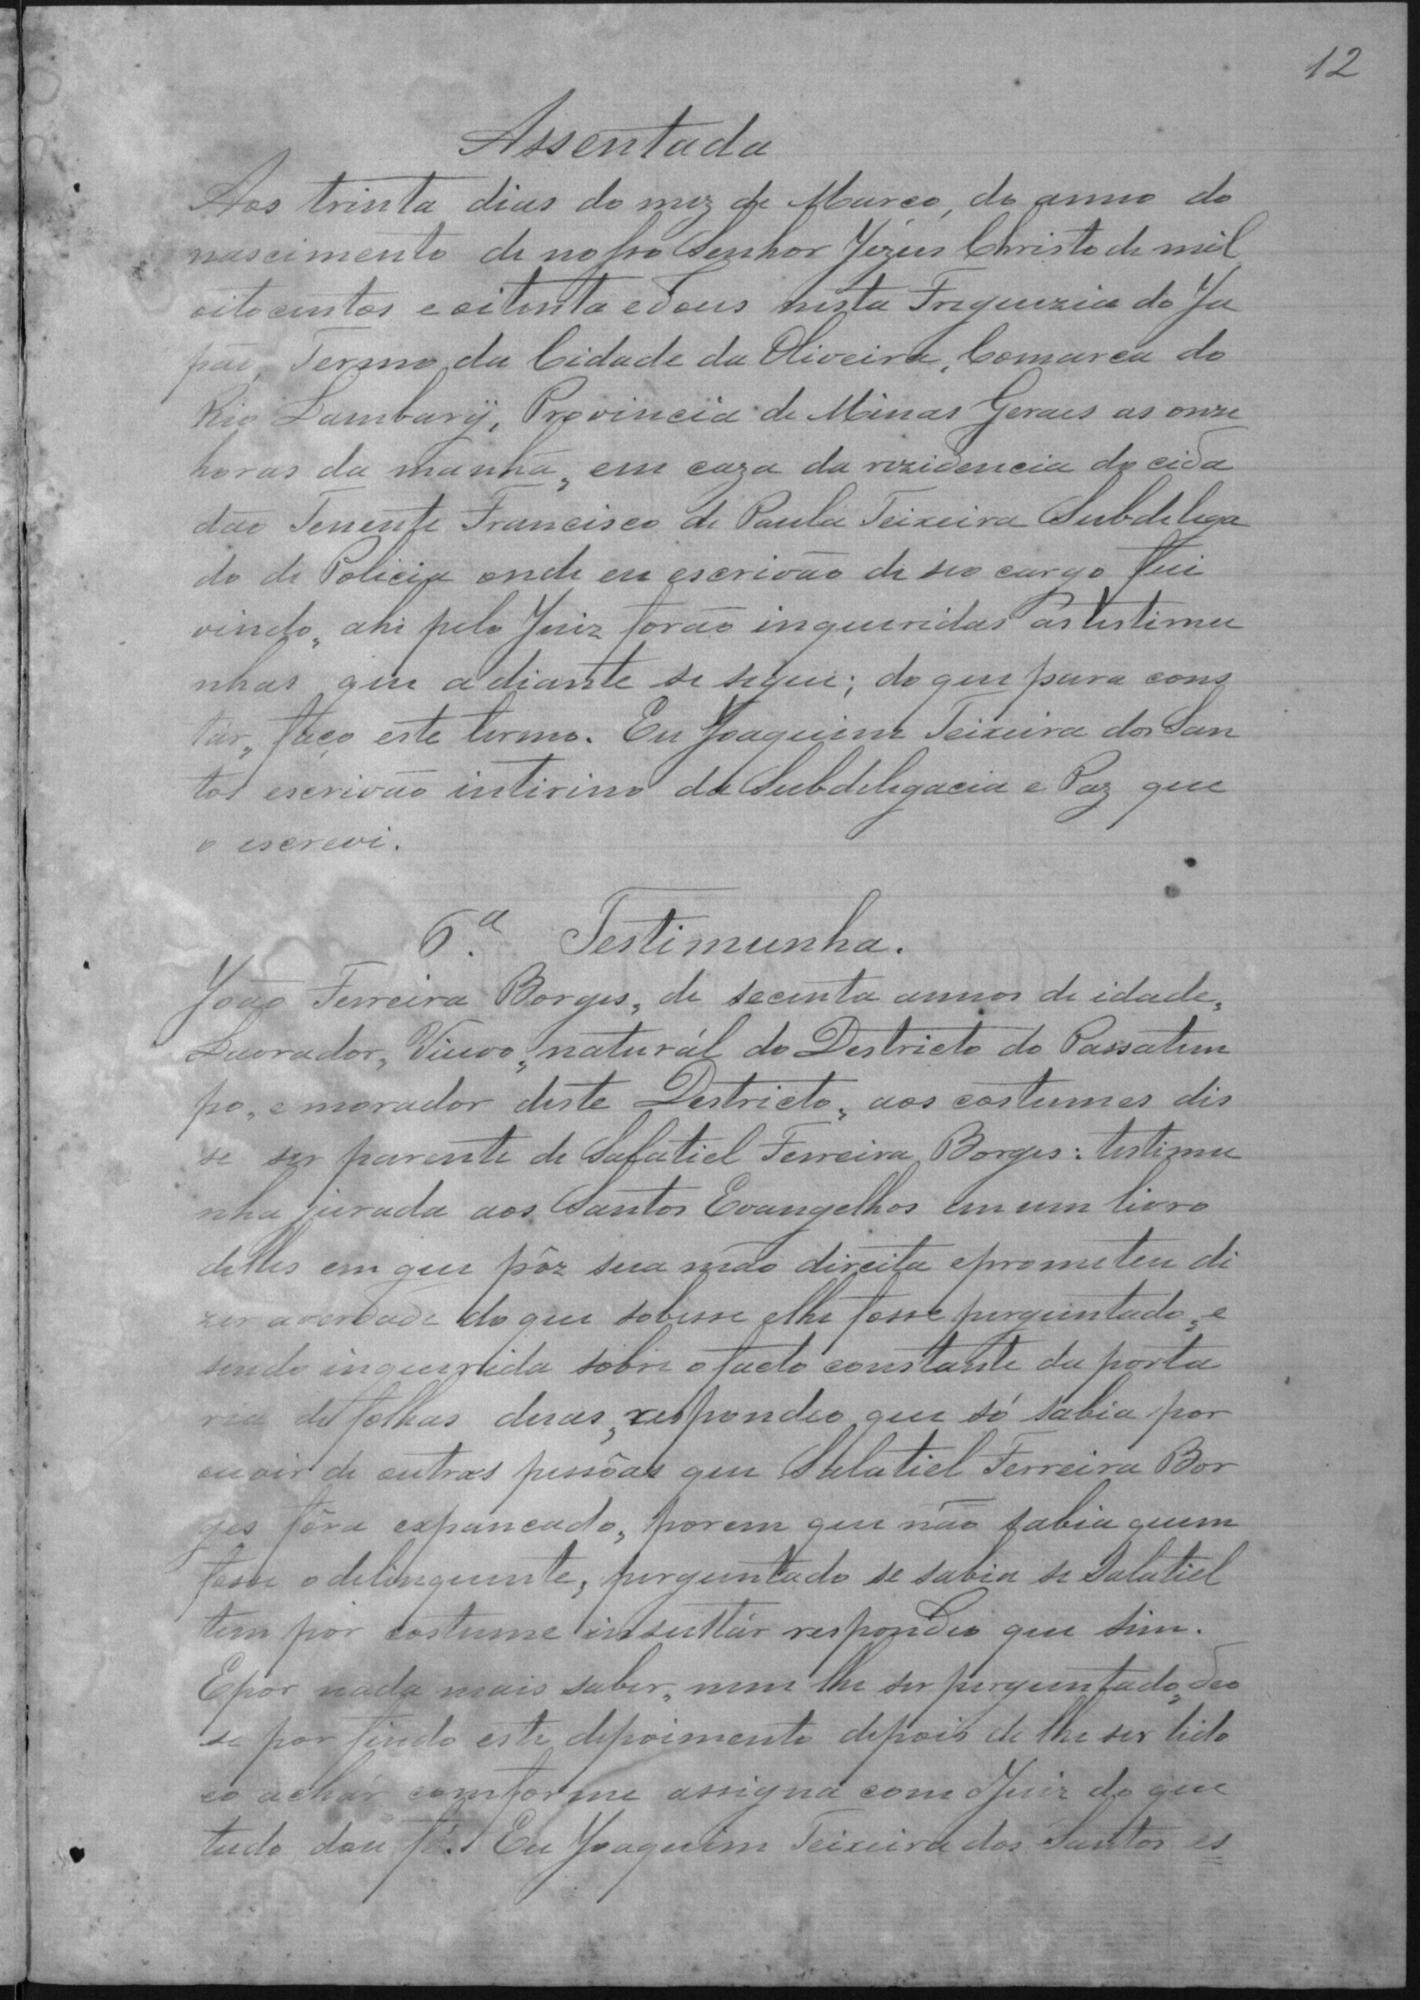 12
Assentada
Aos trinta dias do mez de Março, do anno do
nascimento de nosso Senhor Jézus Christo de mil
oitocentos e oitenta e dous nesta Freguezia do Ja
pão, Termo da Cidade da Oliveira, Comarca do
Rio Lambarÿ, Provincia de Minas Geraes as onze
horas da manhã, em caza da rezidencia do cida
dão Tenente Francisco de Paula Teixeira Subdelega
do de Policia onde eu escrivão de seo cargo fui
vindo, ahi pelo Juiz forão inqueridas as testimu
nhas que adiante se segue; do que para cons
tár, faço este termo. Eu Joaquim Teixeira dos San
tos escrivão intirino da Subdelegacia e Paz que
o escrevi.
6.ª Testimunha.
João Ferreira Borges, de secenta annos de idade,
Lavrador, Viuvo, naturál do Destricto do Passatem
po, e morador deste Destricto, aos costumes dis
se ser parente de Salatiel Ferreira Borges: testimu
nha jurada aos Santos Evangelhos em um livro
delles em que pôz sua mão direita e prometeu di
zer a verdade do que sobesse e lhe fosse perguntado, e
sendo inquerida sobre o facto constante da porta
ria de folhas duas, respondeo que só sabia por
ouvir de outras pessôas que Salatiel Ferreira Bor
ges fôra expancado, porem que não sabia quem
fosse o delinquente, perguntado se sabia se Salatiel
tem por costume insultár respondeo que sim.
E por nada mais saber, nem lhe ser perguntado, deo
se por findo este depoimento depois de lhe ser lido
e o achár comforme assigna com o Juiz do que
tudo dou fé. Eu Joaquim Teixeira dos Santos es